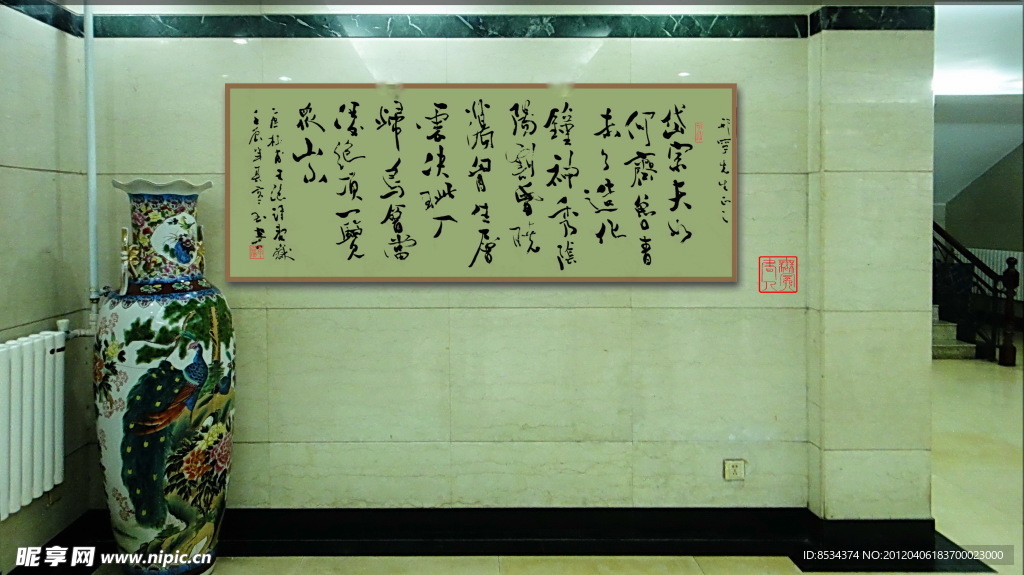 先生正之
岱宗夫如
何齊魯青
未了造化
鐘神秀陰
陽割昏曉
蕩胸生層
雲決眥入
歸鳥會當
凌絕頂一覽
衆山小
壬辰年夏
昵享网 www.nipic.cn
ID:8534374 NO:20120406183700023000